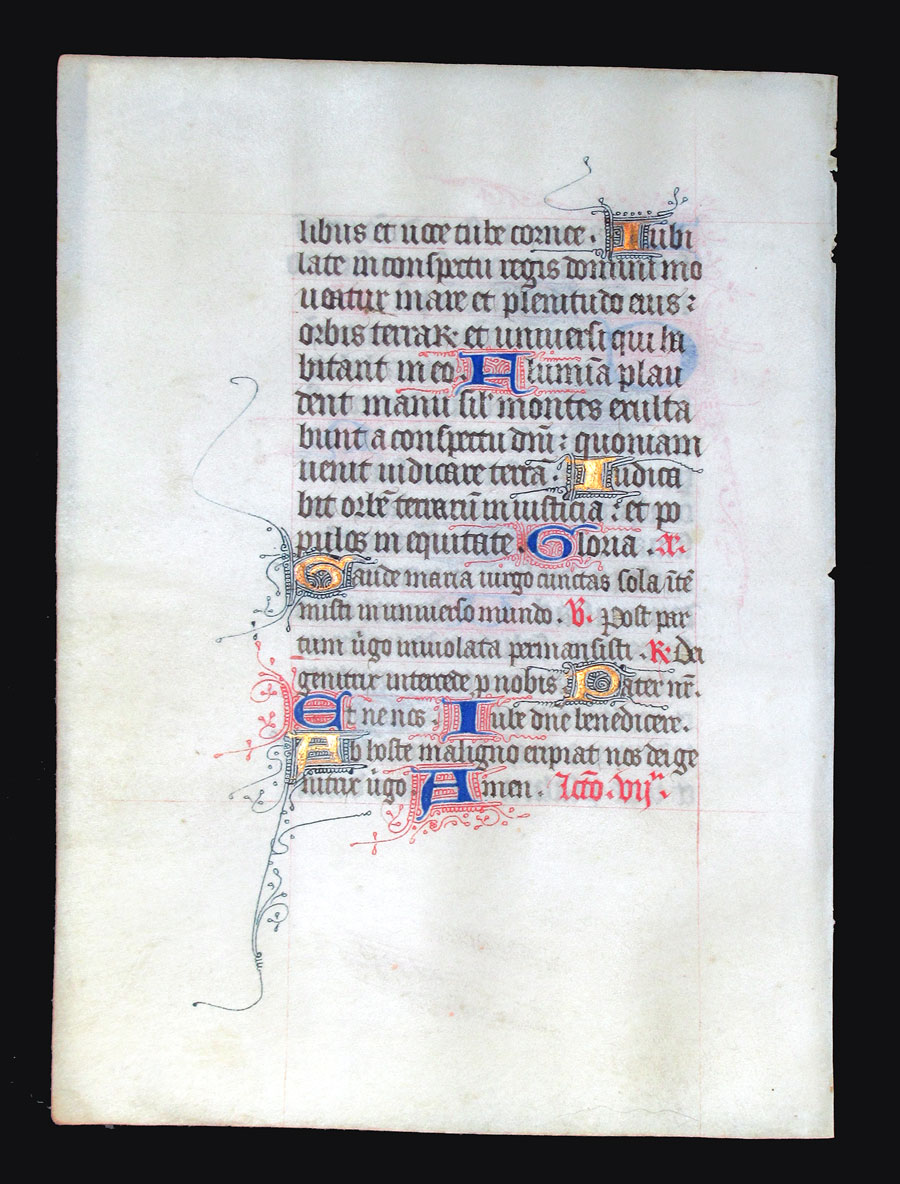 libus et uoce tube cornee. Iubi
late in conspectu regis domini mo
ueatur mare et plenitudo eius:
orbis terraR. et uniuersi qui ha
bitant in eo. Flumīa plau
dent manu sil' montes exulta
bunt a conspectu dnī: quoniam
uenit iudicare terrā. Iudica
bit orbē terrarū in iusticia: et po
pulos in equitate. Gloria. A.
Gaude maria uirgo cunctas sola ītē
misti in uniuerso mundo. V. Post par
tum ūgo inuiolata permansisti. R. Dei
genitrix intercede p nobis Pater nr̄.
Et ne nos. Iube dn̄e benedicere.
Ab hoste maligno eripiat nos dei ge
nitrix ūgo. Amen. Lcō. vij.